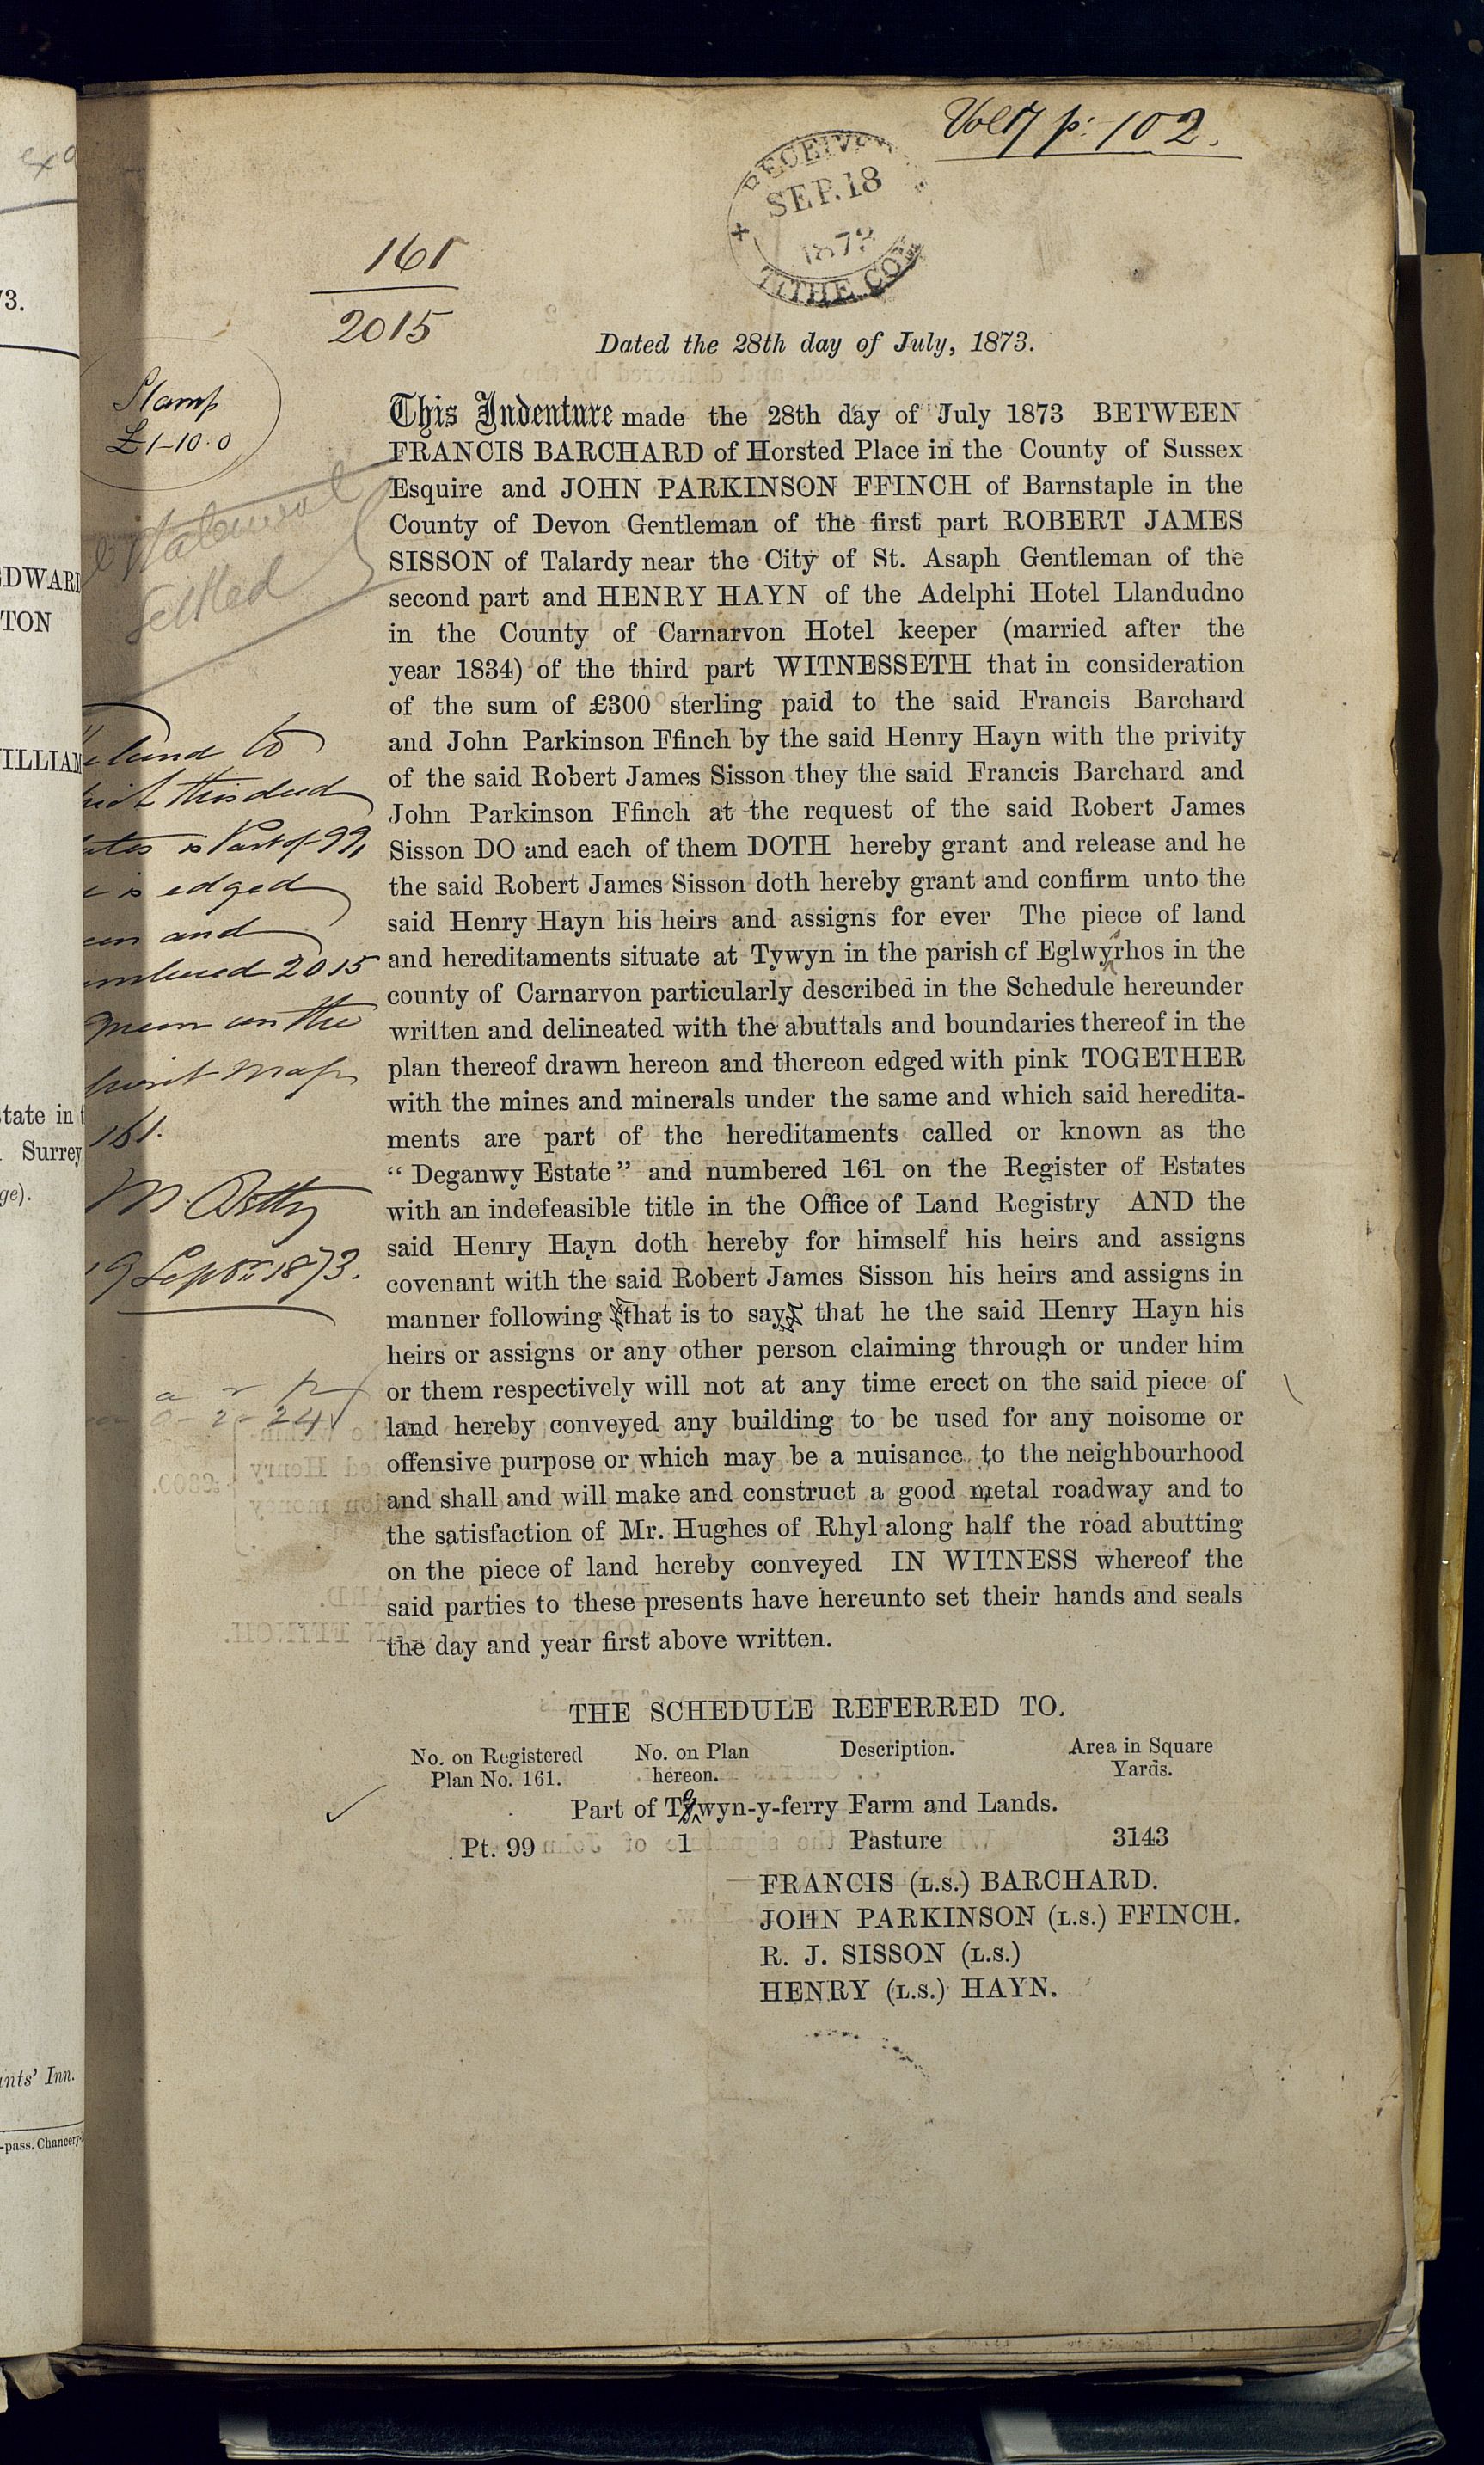 Vol 17 p: 102.
RECEIVED
SEP. 18
1873
TITHE. COM
161
2015
Dated the 28th day of July, 1873.
Stamp
£1-10.0
Statement
Settled
This Indenture made the 28th day of July 1873 BETWEEN
FRANCIS BARCHARD of Horsted Place in the County of Sussex
Esquire and JOHN PARKINSON FFINCH of Barnstaple in the
County of Devon Gentleman of the first part ROBERT JAMES
SISSON of Talardy near the City of St. Asaph Gentleman of the
second part and HENRY HAYN of the Adelphi Hotel Llandudno
in the County of Carnarvon Hotel keeper (married after the
year 1834) of the third part WITNESSETH that in consideration
of the sum of £300 sterling paid to the said Francis Barchard
and John Parkinson Ffinch by the said Henry Hayn with the privity
of the said Robert James Sisson they the said Francis Barchard and
John Parkinson Ffinch at the request of the said Robert James
Sisson DO and each of them DOTH hereby grant and release and he
the said Robert James Sisson doth hereby grant and confirm unto the
said Henry Hayn his heirs and assigns for ever The piece of land
and hereditaments situate at Tywyn in the parish of Eglwyrhos in the
county of Carnarvon particularly described in the Schedule hereunder
written and delineated with the abuttals and boundaries thereof in the
plan thereof drawn hereon and thereon edged with pink TOGETHER
with the mines and minerals under the same and which said heredita-
ments are part of the hereditaments called or known as the
“Deganwy Estate” and numbered 161 on the Register of Estates
with an indefeasible title in the Office of Land Registry AND the
said Henry Hayn doth hereby for himself his heirs and assigns
covenant with the said Robert James Sisson his heirs and assigns in
manner following that is to say that he the said Henry Hayn his
heirs or assigns or any other person claiming through or under him
or them respectively will not at any time erect on the said piece of
land hereby conveyed any building to be used for any noisome or
offensive purpose or which may be a nuisance to the neighbourhood
and shall and will make and construct a good metal roadway and to
the satisfaction of Mr. Hughes of Rhyl along half the road abutting
on the piece of land hereby conveyed IN WITNESS whereof the
said parties to these presents have hereunto set their hands and seals
the day and year first above written.
land to
this deed
is Part of 99,
is edged
and
2015
on the
Map
161.
19 Septr. 1873.
a r p
0-2-24
THE SCHEDULE REFERRED TO.
No. on Registered No. on Plan Description. Area in Square
Plan No. 161. hereon. Yards.
Part of Tywyn-y-ferry Farm and Lands.
Pt. 99 1 Pasture 3143
FRANCIS (L.S.) BARCHARD.
JOHN PARKINSON (L.S.) FFINCH.
R. J. SISSON (L.S.)
HENRY (L.S.) HAYN.
73.
EDWARD
TON
WILLIAM
state in
Surrey
ge).
ants' Inn.
-pass, Chancery-